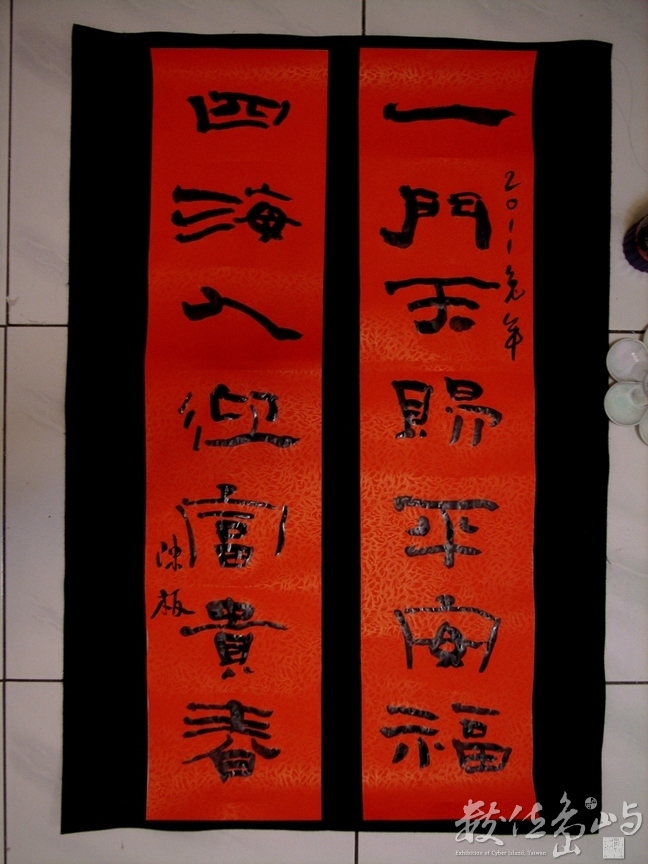 一門天賜平安福
2011兔年
四海人迎富貴春
陳板
數位島嶼
Exhibition of Cyber Island, Taiwan